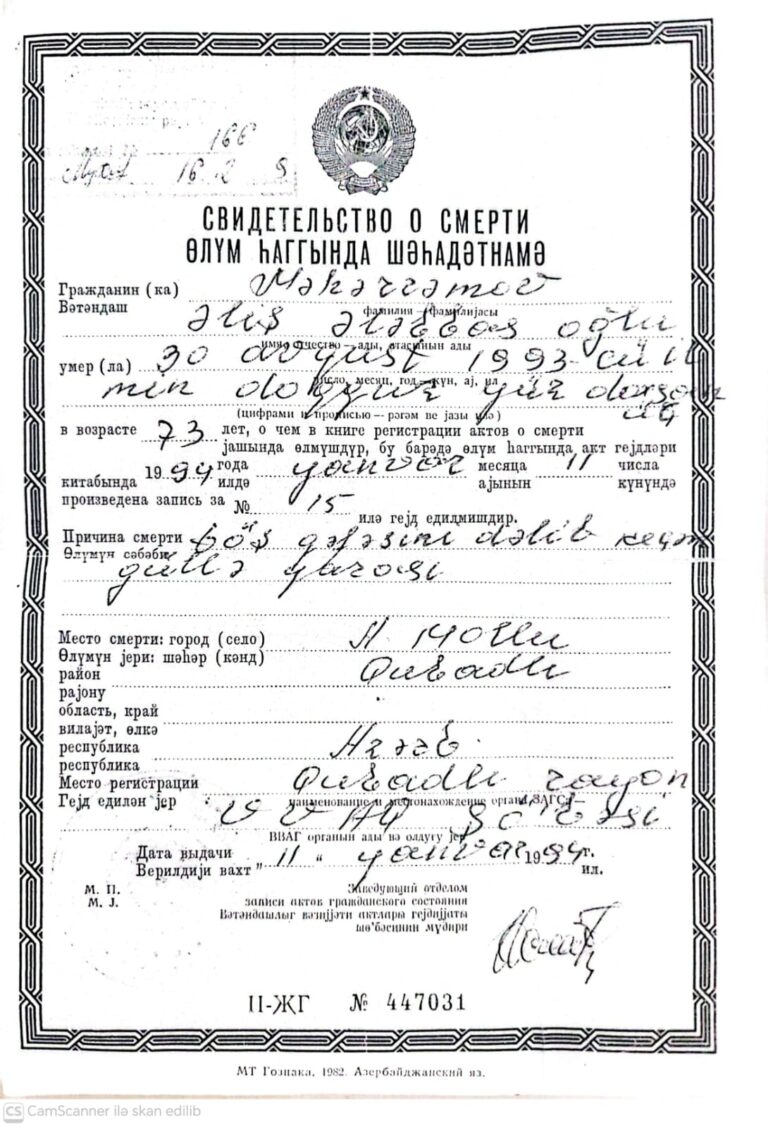 166
16 2
СВИДЕТЕЛЬСТВО О СМЕРТИ
ӨЛҮМ ҺАГГЫНДА ШӘҺАДӘТНАМӘ
Гражданин (ка) Məhərrəmov
Вәтәндаш
фамилия — фамилијасы
Əliş Ələbbas oğlu
имя, отчество — ады, атасынын ады
умер (ла) 30 avqust 1993-cü il
число, месяц, год — күн, ај, ил
min doqquz yüz doxsan üç
(цифрами и прописью — рәгәм ве јазы илә)
в возрасте 73 лет, о чем в книге регистрации актов о смерти
јашында өлмүшдүр, бу барәдә өлүм һаггында акт гејдләри
китабында 1994 года yanvar месяца 11 числа
илдә ајынын күнүндә
произведена запись за № 15
илә гејд едилмишдир.
Причина смерти döş qəfəsini dəlib keçən
Өлүмүн сәбәби
güllə yarası
Место смерти: город (село)
Өлүмүн јери: шәһәр (кәнд)
район Qubadlı
рајону
область, край
вилајәт, өлкә
республика Azərb.
республика
Место регистрации Qubadlı rayon
Гејд едилән јер
наименование и местонахождение органа ЗАГСа
VVAQ şö'bəsi
ВВАГ органын ады вә олдуғу јер
Дата выдачи " 11 " yanvar 1994 г.
Верилдији вахт ил.
М. П.
М. Ј.
Заведующий отделом
записи актов гражданского состояния
Вәтәндашлыг вәзијјәти актлары гејдијјаты
шө'бәсинин мүдири
II-ЖГ № 447031
МТ Гознака. 1982. Азербайджанский яз.
CS CamScanner ilə skan edilib